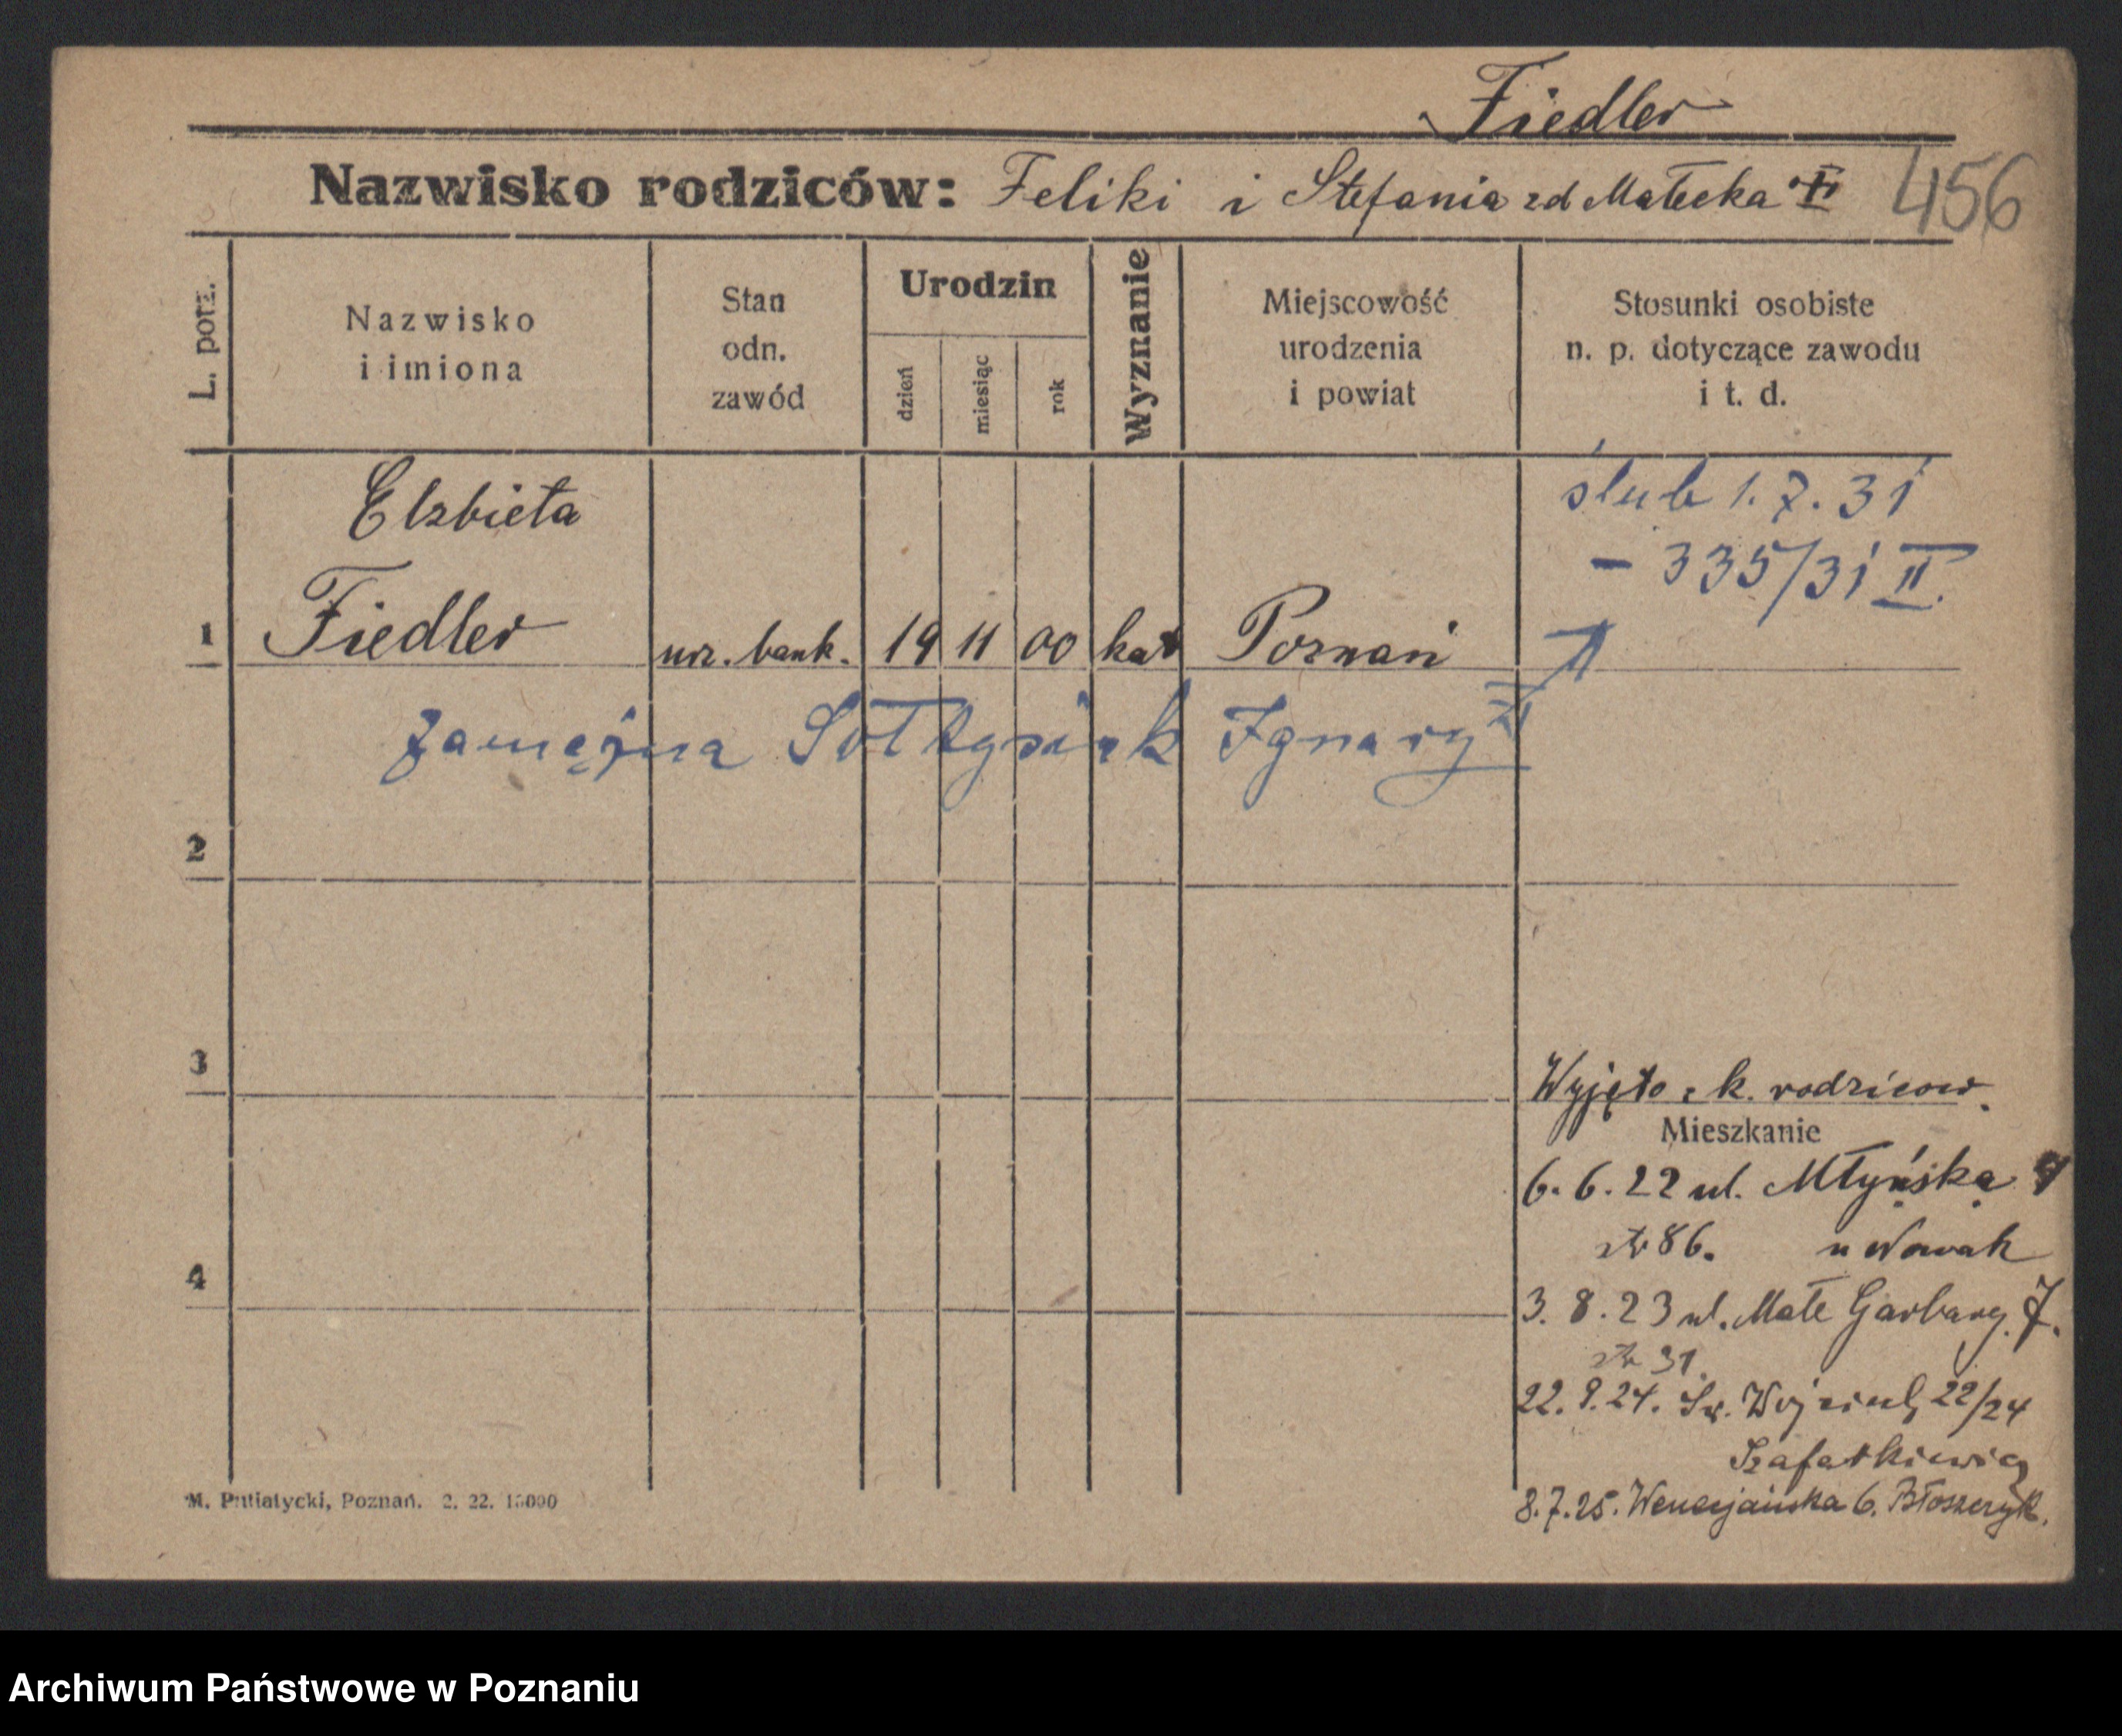 Fiedler
Nazwisko rodziców: Feliks i Stefania zd Małecka 456
L. porz.
Nazwisko i imiona
Stan odn. zawód
Urodzin
dzień
miesiąc
rok
Wyznanie
Miejscowość urodzenia i powiat
Stosunki osobiste n. p. dotyczące zawodu i t. d.
Elżbieta
ślub 1.7.31
- 335/31 II.
1 Fiedler urz. bank. 19 11 00 kat Poznań
zamężna Sołtysiak Ignacy
2
3
Wyjęto z k. rodziców.
Mieszkanie
6.6.22 ul. Młyńska
str 86. u Nowak
4
3.8.23 ul. Małe Garbary 7.
str 31.
22.9.24. Św. Wojciech 22/24
Szafarkiewicz
8.7.25. Wenecjańska 6. Błoszczyk.
M. Putiatycki, Poznań. 2. 22. 15000
Archiwum Państwowe w Poznaniu